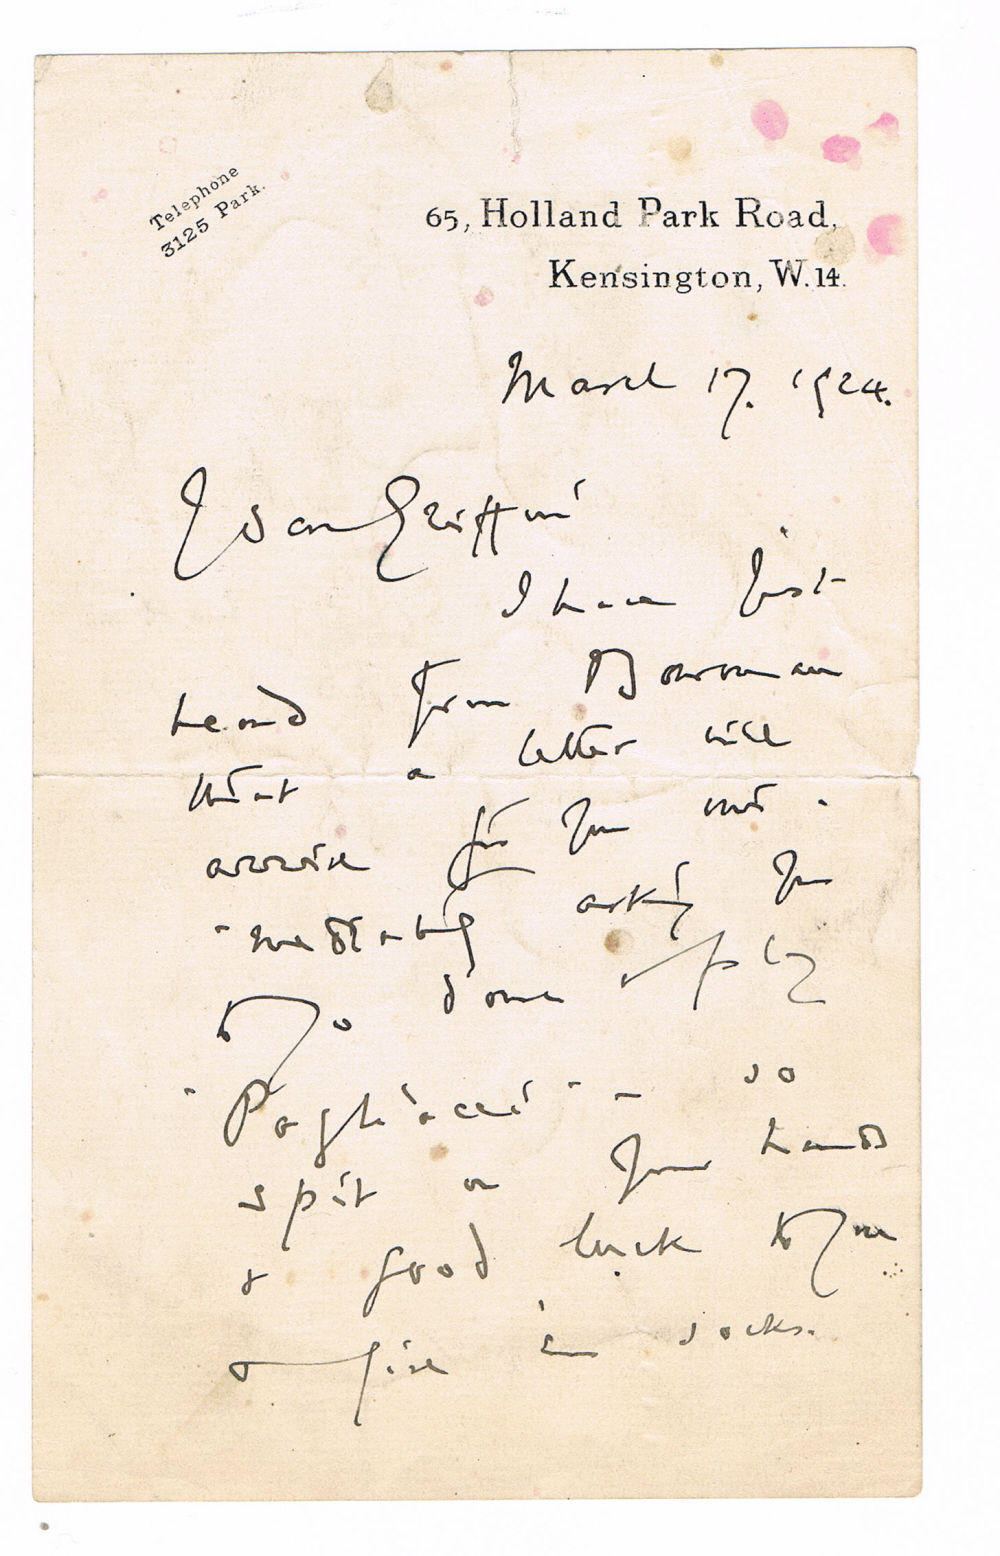 Telephone
3125 Park.
65, Holland Park Road,
Kensington, W.14.
March 17. 1924.
Griffin
I have just
heard from Bowman
that a letter will
arrive for you
asking you
to go down & play
"Pagliacci" – so
spit on your hands
& good luck to you
& give 'em socks.